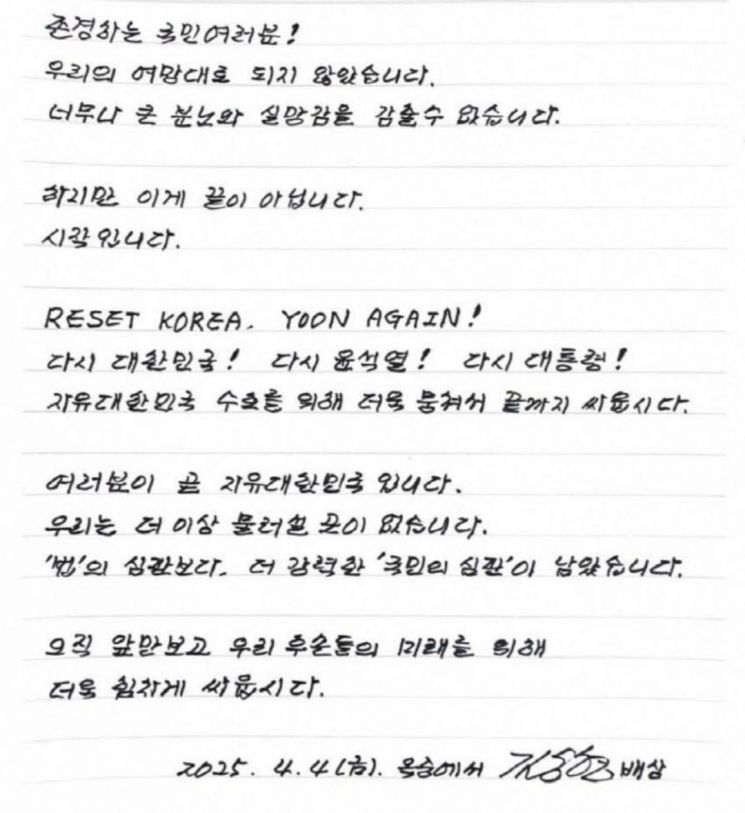 존경하는 국민여러분!
우리의 여망대로 되지 않았습니다.
너무나 큰 분노와 실망감을 감출수 없습니다.
하지만 이게 끝이 아닙니다.
시작입니다.
RESET KOREA. YOON AGAIN!
다시 대한민국! 다시 윤석열! 다시 대통령!
자유대한민국 수호를 위해 더욱 뭉쳐서 끝까지 싸웁시다.
여러분이 곧 자유대한민국 입니다.
우리는 더 이상 물러설 곳이 없습니다.
'법'의 심판보다. 더 강력한 '국민의 심판'이 남았습니다.
오직 앞만보고 우리 후손들의 미래를 위해
더욱 힘차게 싸웁시다.
2025. 4. 4(금). 옥중에서 배상